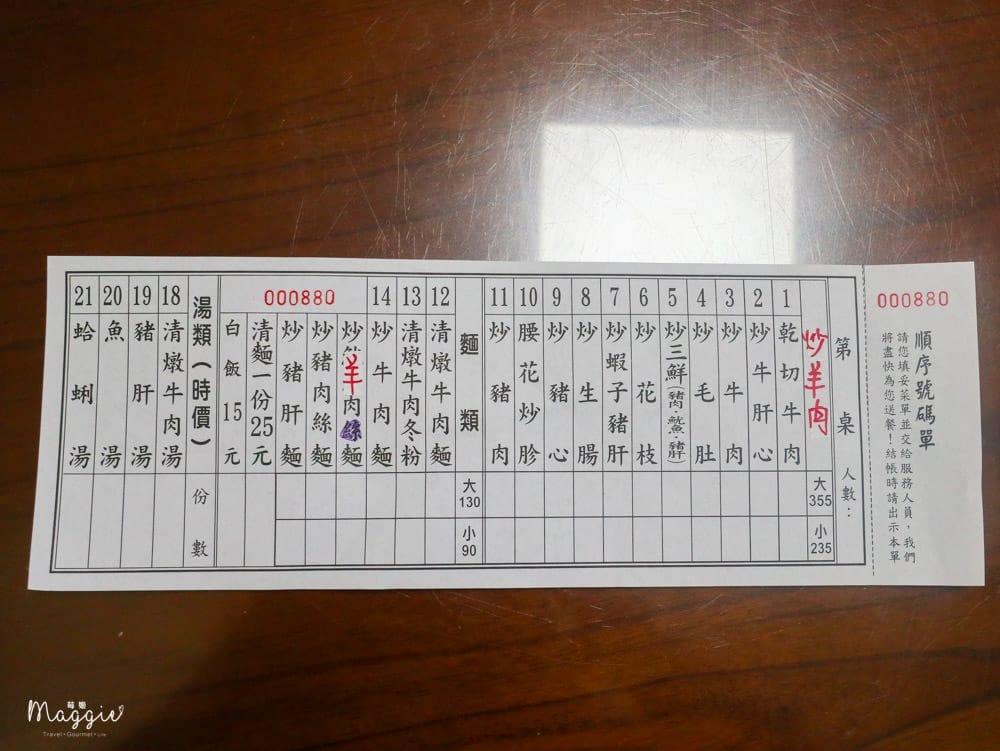 000880
順序號碼單
請您填妥菜單並交給服務人員，我們
將盡快為您送餐！結帳時請出示本單
第 桌 人數：
炒羊肉 大355 小235
1 乾切牛肉
2 炒牛肝心
3 炒牛肉
4 炒毛肚
5 炒三鮮(豬肉·魷·豬肝)
6 炒花枝
7 炒蝦子豬肝
8 炒生腸
9 炒豬心
10 腰花炒胗
11 炒豬肉
麵類 大130 小90
12 清燉牛肉麵
13 清燉牛肉冬粉
14 炒牛肉麵
000880
炒羊肉絲麵
炒豬肉絲麵
炒豬肝麵
清麵一份25元
白飯15元
湯類(時價) 份數
18 清燉牛肉湯
19 豬肝湯
20 魚湯
21 蛤蜊湯
莓姬
Maggie
Travel·Gourmet·Life